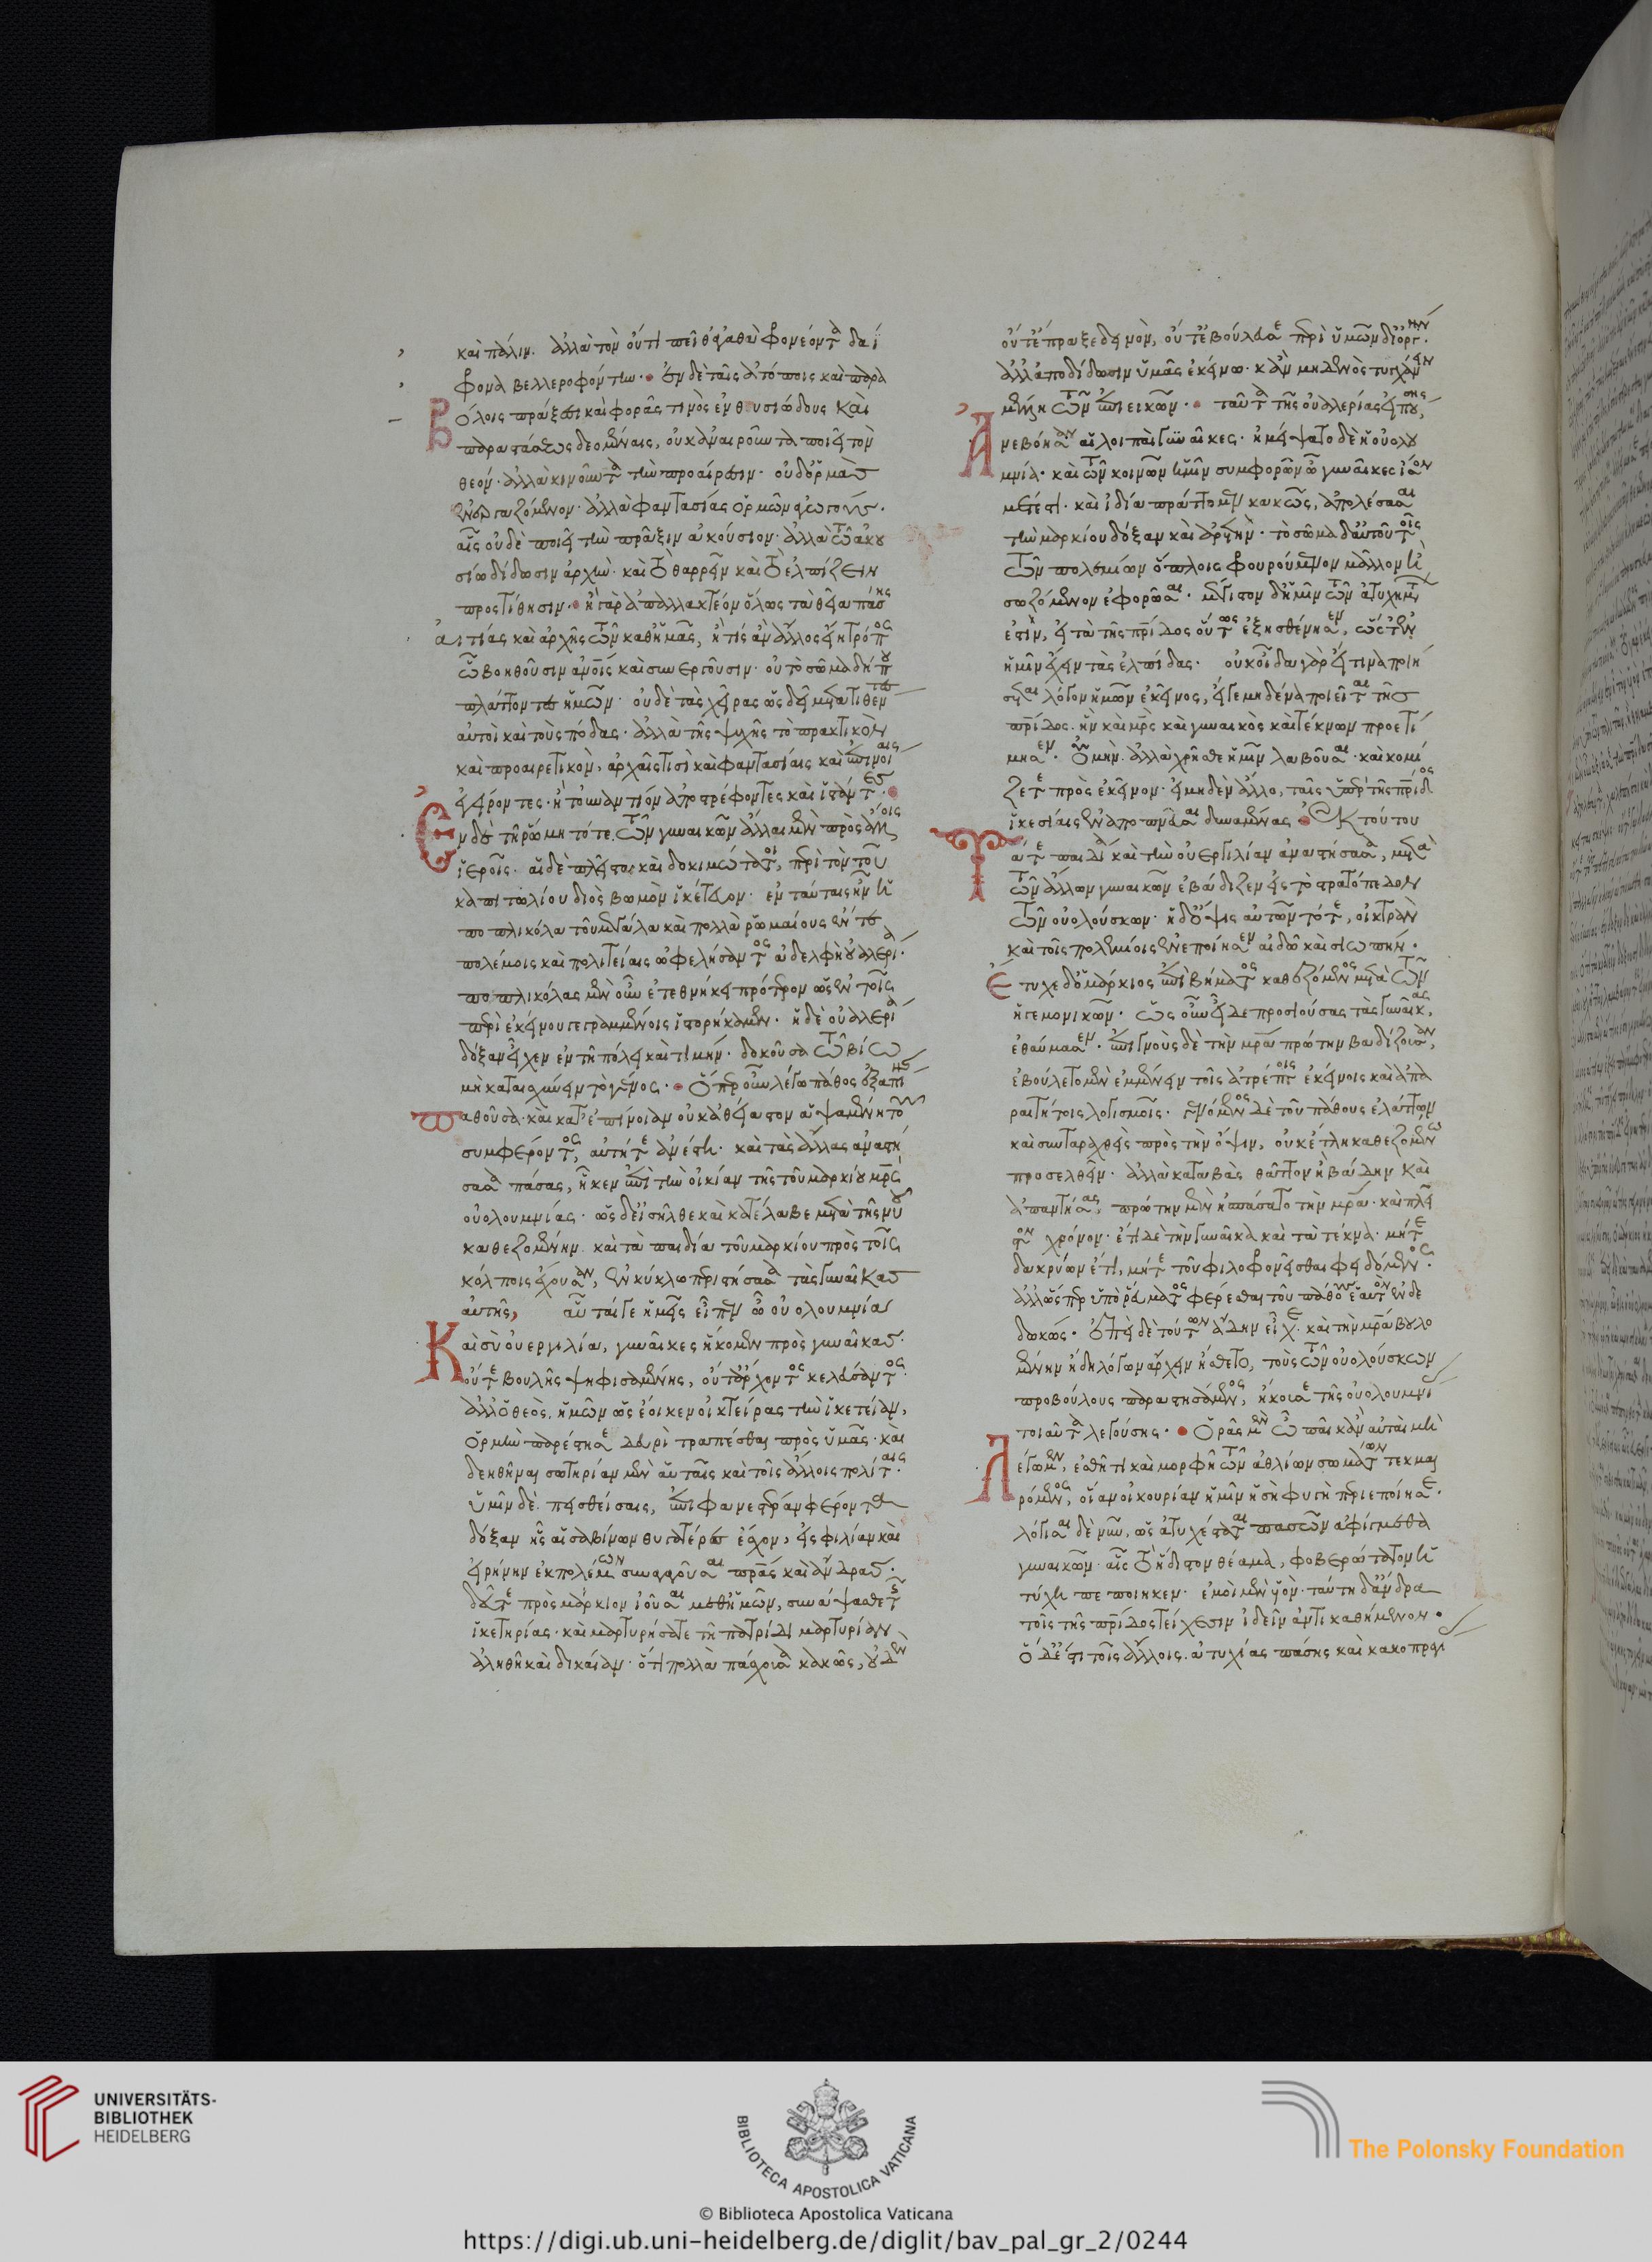 καὶ πάλιν. ἀλλὰ τὸν οὔτι πεῖθ' ἀγαθὰ φρονέοντα δαί
φρονα βελλεροφόντην. ἐν δὲ ταῖς ἀτόποις καὶ παρα
βόλοις πράξεσι καὶ φορᾶς τινὸς ἐνθουσιώδους καὶ
παραστάσεως δεομέναις, οὐκ ἀναιροῦντα ποιεῖ τὸν
θεόν. ἀλλὰ κινοῦντα τὴν προαίρεσιν. οὐδ' ὁρμὰς
ἐνεργαζόμενον. ἀλλὰ φαντασίας ὁρμῶν ἀγωγούς.
αἷς οὐδὲ ποιεῖ τὴν πρᾶξιν ἀκούσιον. ἀλλὰ τῷ ἑκου
σίῳ δίδωσιν ἀρχήν. καὶ τὸ θαρρεῖν καὶ τὸ ἐλπίζειν
προστίθησιν. ἢ γὰρ ἀπαλλακτέον ὅλως τὰ θεῖα πάσης
αἰτίας καὶ ἀρχῆς τῶν καθ' ἡμᾶς, ἢ τίς ἂν ἄλλος εἴη τρόπος
ᾧ βοηθοῦσιν ἀνοις καὶ συνεργοῦσιν. οὐ τὸ σῶμα δήπου
πλάττοντες ἡμῶν. οὐδὲ τὰς χεῖρας ὡς δεῖ μετατιθέντες
αὐτοὶ καὶ τοὺς πόδας. ἀλλὰ τῆς ψυχῆς τὸ πρακτικὸν
καὶ προαιρετικὸν, ἀρχαῖς τισὶ καὶ φαντασίαις καὶ ἐπινοίαις
ἐγείροντες. ἢ τοὐναντίον ἀποστρέφοντες καὶ ἱστάντες.
Ἐν δὲ τῇ ῥώμῃ τότε τῶν γυναικῶν ἄλλαι μὲν πρὸς ἄλλοις
ἱεροῖς. αἱ δὲ πλεῖσται καὶ δοκιμώταται, περὶ τὸν τοῦ
καπιτωλίου διὸς βωμὸν ἱκέτευον. ἐν ταύταις ἦν ἡ
ποπλικόλα τοῦ μεγάλα καὶ πολλὰ ῥωμαίους ἔν τε
πολέμοις καὶ πολιτείαις ὠφελήσαντος ἀδελφὴ οὐαλερία.
ποπλικόλας μὲν οὖν ἐτεθνήκει πρότερον ὡς ἐν τοῖς
περὶ ἐκείνου γεγραμμένοις ἱστορήκαμεν. ἡ δὲ οὐαλερία
δόξαν εἶχεν ἐν τῇ πόλει καὶ τιμήν. δοκοῦσα τῷ βίῳ
μὴ καταισχύνειν τὸ γένος. ὅπερ οὖν λέγω πάθος ἐξαπίνης
παθοῦσα. καὶ κατ' ἐπίνοιαν οὐκ ἀθείαστον ἁψαμένη τοῦ
συμφέροντος, αὐτή τε ἀνέστη. καὶ τὰς ἄλλας ἀναστή
σασα πάσας, ἧκεν ἐπὶ τὴν οἰκίαν τῆς τοῦ μαρκίου μρς
οὐολουμνίας. ὡς δ' εἰσῆλθε καὶ κατέλαβε μετὰ τῆς νυοῦ
καθεζομένην. καὶ τὰ παιδία τοῦ μαρκίου πρὸς τοῖς
κόλποις ἔχουσαν, ἐν κύκλῳ περιστήσασα τὰς γυναῖκας
αὐτῆς, αὗταί γε ἡμεῖς εἶπεν ὦ οὐολουμνία
Καὶ σὺ οὐεργιλία, γυναῖκες ἥκομεν πρὸς γυναῖκας.
οὔτε βουλῆς ψηφισαμένης, οὔτ' ἄρχοντος κελεύσαντος.
ἀλλ' ὁ θεὸς. ἡμῶν ὡς ἔοικεν οἰκτείρας τὴν ἱκετείαν,
ὁρμὴν παρέστησε δευρὶ τραπέσθαι πρὸς ὑμᾶς. καὶ
δεηθῆναι σωτηρίαν μὲν αὑταῖς καὶ τοῖς ἄλλοις πολίταις.
ὑμῖν δὲ πεισθείσαις, ἐπιφανεστέραν φέροντα
δόξαν ἧς αἱ σαβίνων θυγατέρες ἔσχον, εἰς φιλίαν καὶ
εἰρήνην ἐκ πολέμων συναγαγοῦσαι πρας καὶ ἄνδρας.
δεῦτε πρὸς μάρκιον ἰοῦσαι μεθ' ἡμῶν, συνάψασθε τῆς
ἱκετηρίας. καὶ μαρτυρήσατε τῇ πατρίδι μαρτυρίαν
ἀληθῆ καὶ δικαίαν. ὅτι πολλὰ πάσχουσα κακῶς, οὐδὲν
οὔτε ἔπραξε δεινὸν, οὔτε ἐβούλευσε περὶ ὑμῶν δι' ὀργήν.
ἀλλ' ἀποδίδωσιν ὑμᾶς ἐκείνῳ. κἂν μηδενὸς τυγχάνειν
μέλλῃ τῶν ἐπιεικῶν. ταῦτα τῆς οὐαλερίας εἰπούσης,
Ἀνεβόησαν αἱ λοιπαὶ γυναῖκες. ἠμείψατο δὲ ἡ οὐολου
μνία. καὶ τῶν κοινῶν ἡμῖν συμφορῶν ὦ γυναῖκες ἴσον
μέτεστι. καὶ ἰδίᾳ πράττομεν κακῶς, ἀπολέσασαι
τὴν μαρκίου δόξαν καὶ ἀρετήν. τὸ σῶμα δ' αὐτοῦ τοῖς
τῶν πολεμίων ὅπλοις φρουρούμενον μᾶλλον ἢ
σωζόμενον ἐφορῶσαι. μέγιστον δὲ ἡμῖν τῶν ἀτυχημάτων
ἐστὶν, εἰ τὰ τῆς πρίδος οὕτως ἐξησθένησεν, ὥστε ἐν
ἡμῖν ἔχειν τὰς ἐλπίδας. οὐκ οἶδα γὰρ εἴ τινα ποιή
σεται λόγον ἡμῶν ἐκεῖνος, εἴγε μηδένα ποιεῖται τῆς
πρίδος. ἣν καὶ μρς καὶ γυναικὸς καὶ τέκνων προετί
μησεν. οὐ μὴν ἀλλὰ χρῆσθε ἡμῖν λαβοῦσαι. καὶ κομί
ζετε πρὸς ἐκεῖνον. εἰ μηδὲν ἄλλο, ταῖς ὑπὲρ τῆς πρίδος
ἱκεσίαις ἐναποπνεῦσαι δυναμένας. Ἐκ τούτου
Τά τε παιδία καὶ τὴν οὐεργιλίαν ἀναστήσασα, μετὰ
τῶν ἄλλων γυναικῶν ἐβάδιζεν εἰς τὸ στρατόπεδον
τῶν οὐολούσκων. ἡ δ' ὄψις αὐτῶν τότε, οἰκτρὰν
καὶ τοῖς πολεμίοις ἐνεποίησεν αἰδῶ καὶ σιωπήν.
Ἔτυχε δ' ὁ μάρκιος ἐπὶ βήματος καθεζόμενος μετὰ τῶν
ἡγεμονικῶν. ὡς οὖν εἶδε προσιούσας τὰς γυναῖκας,
ἐθαύμασεν. ἐπιγνοὺς δὲ τὴν μρα πρώτην βαδίζουσαν,
ἐβούλετο μὲν ἐμμένειν τοῖς ἀτρέπτοις ἐκείνοις καὶ ἀπα
ραιτήτοις λογισμοῖς. γενόμενος δὲ τοῦ πάθους ἐλάττων
καὶ συνταραχθεὶς πρὸς τὴν ὄψιν, οὐκ ἔτλη καθεζομένῳ
προσελθεῖν. ἀλλὰ καταβὰς θᾶττον ἢ βάδην καὶ
ἀπαντήσας, πρώτην μὲν ἠσπάσατο τὴν μρα. καὶ πλεῖ
στον χρόνον. ἔτι δὲ τὴν γυναῖκα καὶ τὰ τέκνα. μήτε
δακρύων ἔτι, μήτε τοῦ φιλοφρονεῖσθαι φειδόμενος.
ἀλλ' ὥσπερ ὑπὸ ῥεύματος φέρεσθαι τοῦ πάθους ἑαυτὸν ἐνδε
δωκώς. ἐπεὶ δὲ τούτων ἄδην εἶχε. καὶ τὴν μρα βουλο
μένην ἤδη λόγων ἄρχειν ᾔσθετο, τοὺς τῶν οὐολούσκων
προβούλους παραστησάμενος, ἤκουσε τῆς οὐολουμνί
τοιαῦτα λεγούσης. ὁρᾷς μὲν ὦ παῖ κἂν αὐταὶ μὴ
Λέγωμεν, ἐσθῆτι καὶ μορφῇ τῶν ἀθλίων σωμάτων τεκμαι
ρόμενος, οἵαν οἰκουρίαν ἡμῖν ἡ σὴ φυγὴ περιεποίησε.
λόγισαι δὲ νῦν, ὡς ἀτυχέσταται πασῶν ἀφίγμεθα
γυναικῶν. αἷς τὸ ἥδιστον θέαμα, φοβερώτατον ἡ
τύχη πεποίηκεν. ἐμοὶ μὲν υἱὸν. ταύτῃ δ' ἄνδρα
τοῖς τῆς πρίδος τείχεσιν ἰδεῖν ἀντικαθήμενον.
ὃ δ' ἔστι τοῖς ἄλλοις. ἀτυχίας πάσης καὶ κακοπραγί
UNIVERSITÄTS-
BIBLIOTHEK
HEIDELBERG
BIBLIOTECA APOSTOLICA VATICANA
The Polonsky Foundation
© Biblioteca Apostolica Vaticana
https://digi.ub.uni-heidelberg.de/diglit/bav_pal_gr_2/0244